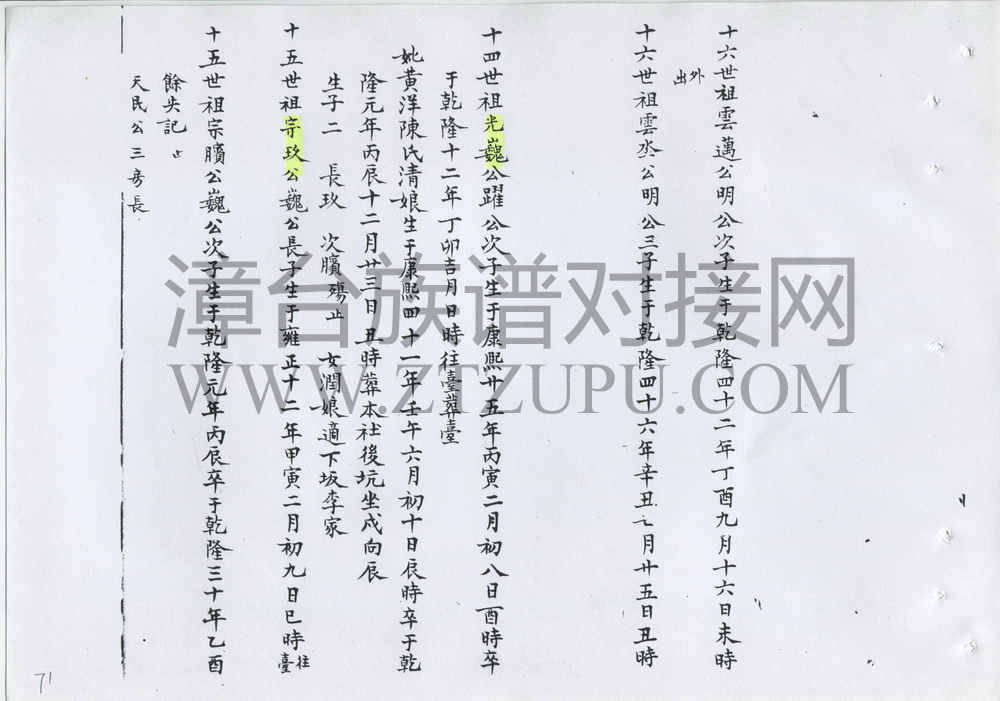 十六世祖雲邁公明公次子生于乾隆四十二年丁酉九月十六日未時
外出
十六世祖雲烝公明公三子生于乾隆四十六年辛丑二月廿五日丑時
十四世祖光巍公躍公次子生于康熙廿五年丙寅二月初八日酉時卒
于乾隆十二年丁卯吉月日時往臺葬臺
妣黃洋陳氏清娘生于康熙四十一年壬午六月初十日辰時卒于乾
隆元年丙辰十二月廿三日丑時葬本社後坑坐戌向辰
生子二 長玖 次臏殤止 女潤娘適下坂李家
十五世祖宗玖公巍公長子生于雍正十二年甲寅二月初九日巳時往臺
十五世祖宗臏公巍公次子生于乾隆元年丙辰卒于乾隆三十年乙酉
餘失記 止
天民公三房長
漳台族谱对接网
WWW.ZTZUPU.COM
71